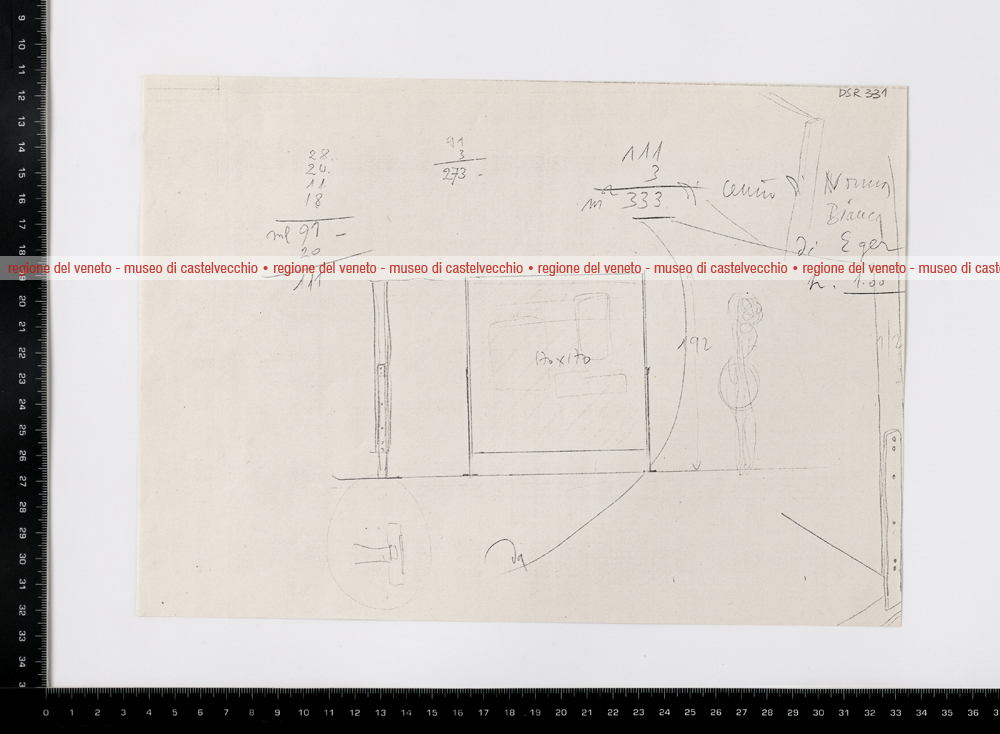 DSR 331
28.
24.
11
18
ml 91 -
20
111
91
3
273 -
111
3
m² 333
di
Bianca
di Eger
h. 1.00
regione del veneto - museo di castelvecchio • regione del veneto - museo di castelvecchio • regione del veneto - museo di castelvecchio • regione del veneto - museo di cast
170x170
192
9
10
11
12
13
14
15
16
17
18
20
21
22
23
24
25
26
27
28
29
30
31
32
33
34
0 1 2 3 4 5 6 7 8 9 10 11 12 13 14 15 16 17 18 19 20 21 22 23 24 25 26 27 28 29 30 31 32 33 34 35 36